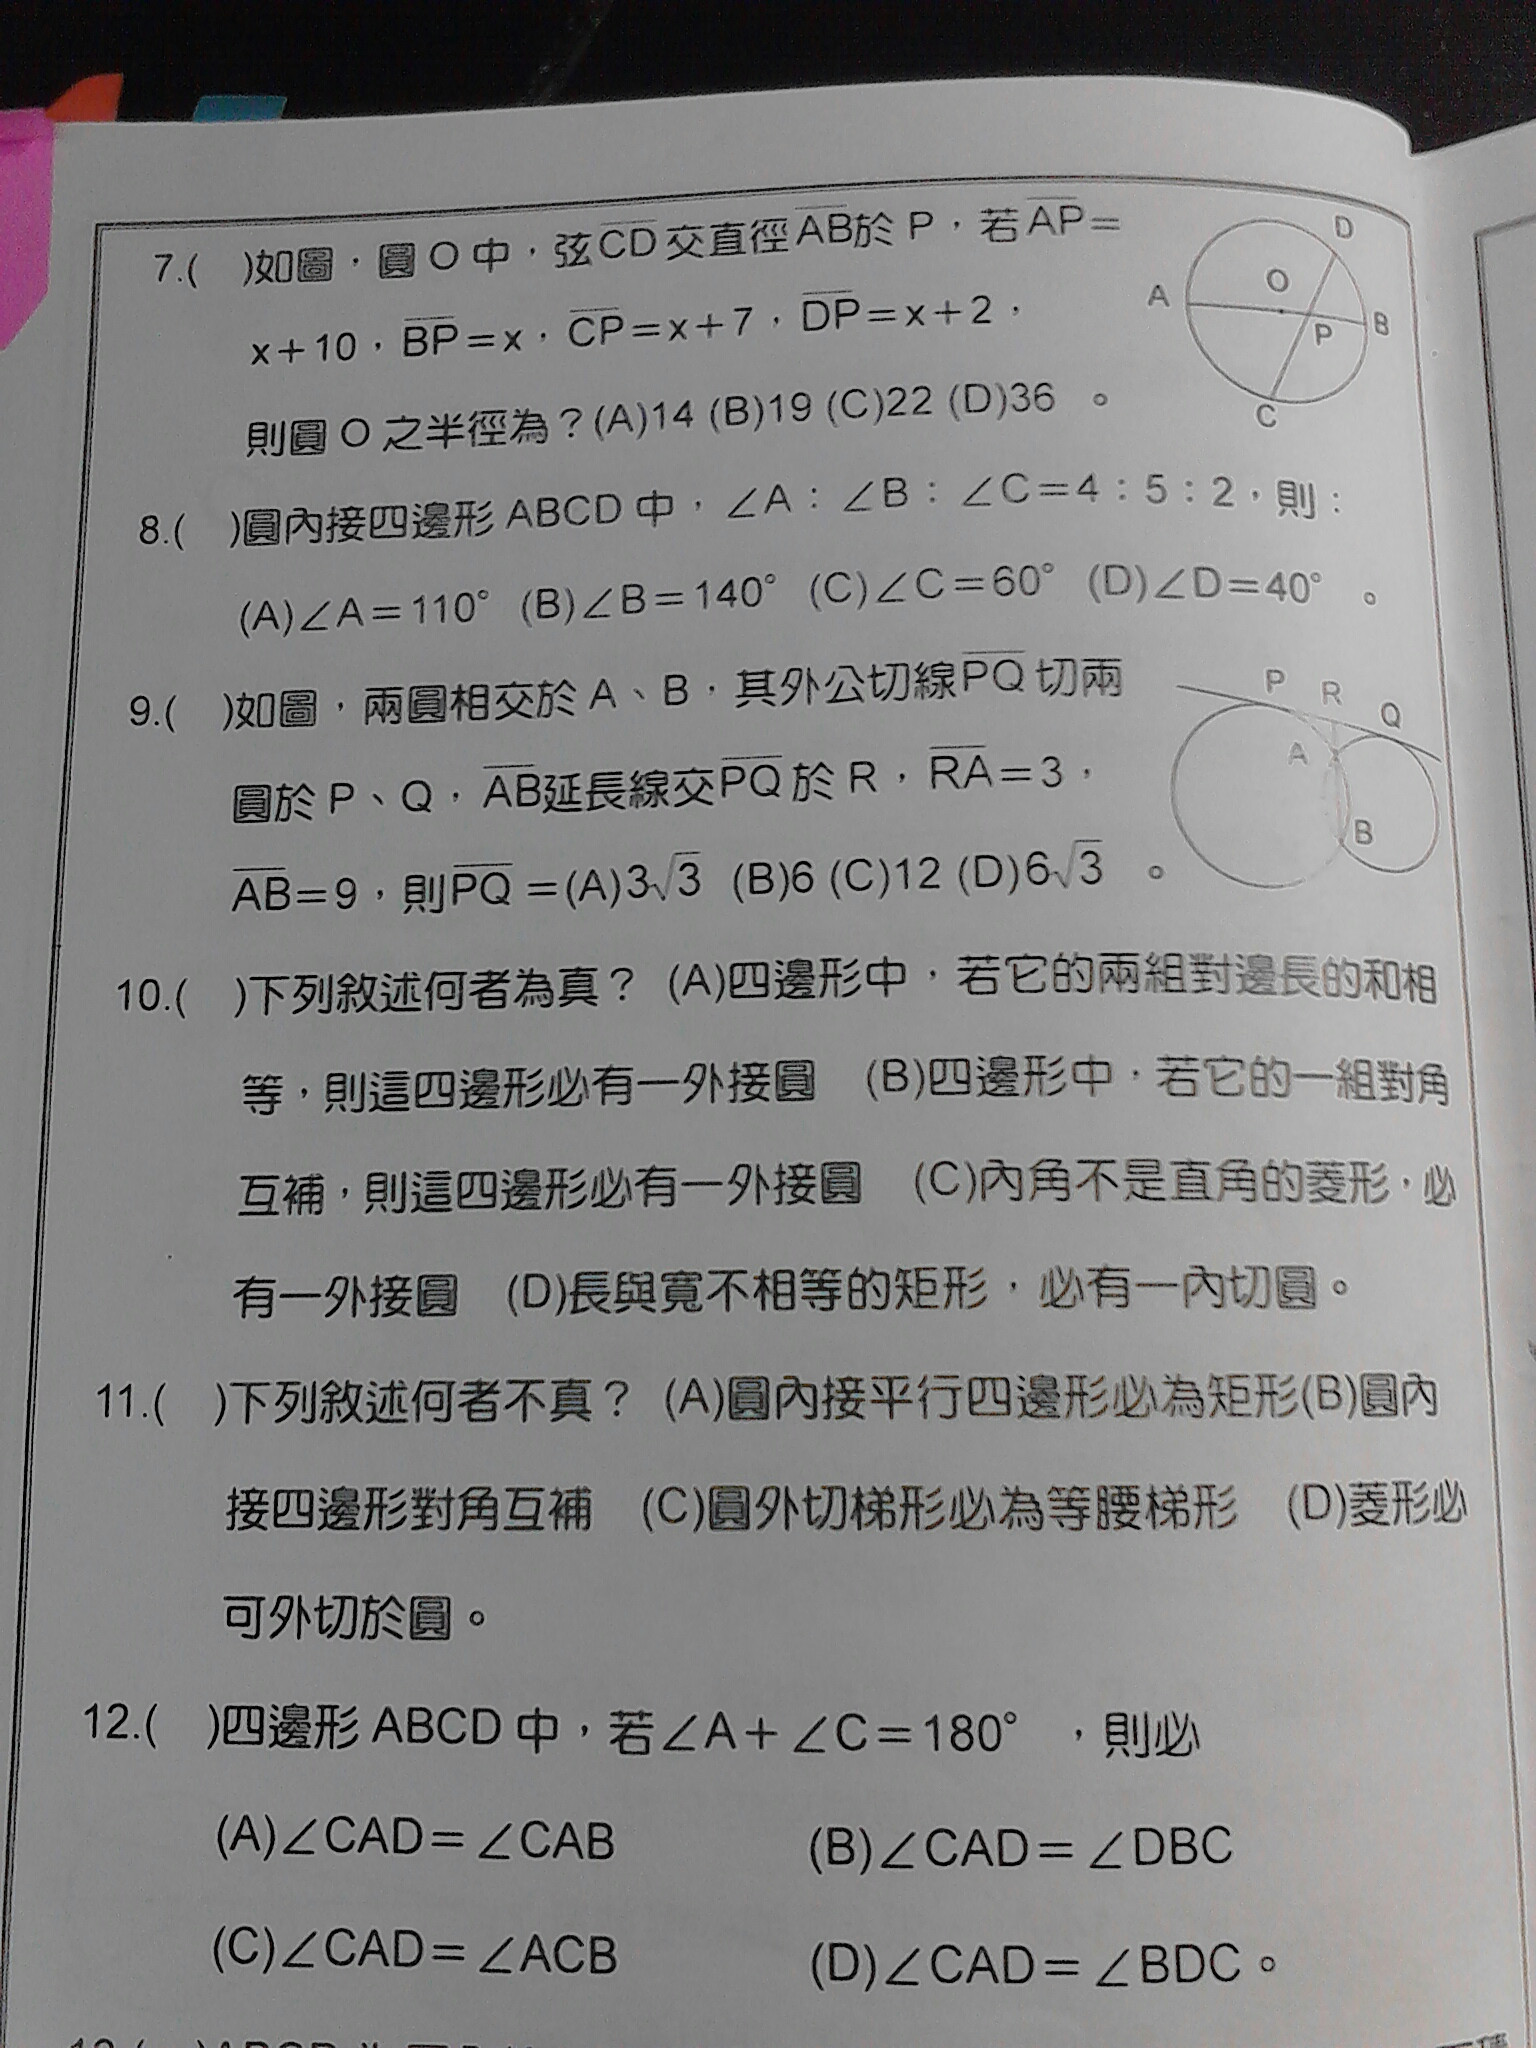 7.( )如圖，圓O中，弦CD交直徑AB於P，若AP=
x+10，BP=x，CP=x+7，DP=x+2，
則圓O之半徑為？(A)14 (B)19 (C)22 (D)36 。
D
O
A
B
P
C
8.( )圓內接四邊形ABCD中，∠A：∠B：∠C=4：5：2，則：
(A)∠A=110° (B)∠B=140° (C)∠C=60° (D)∠D=40° 。
9.( )如圖，兩圓相交於A、B，其外公切線PQ切兩
圓於P、Q，AB延長線交PQ於R，RA=3，
AB=9，則PQ=(A)3√3 (B)6 (C)12 (D)6√3 。
P R Q
A
B
10.( )下列敘述何者為真？ (A)四邊形中，若它的兩組對邊長的和相
等，則這四邊形必有一外接圓 (B)四邊形中，若它的一組對角
互補，則這四邊形必有一外接圓 (C)內角不是直角的菱形，必
有一外接圓 (D)長與寬不相等的矩形，必有一內切圓。
11.( )下列敘述何者不真？ (A)圓內接平行四邊形必為矩形(B)圓內
接四邊形對角互補 (C)圓外切梯形必為等腰梯形 (D)菱形必
可外切於圓。
12.( )四邊形ABCD中，若∠A+∠C=180° ，則必
(A)∠CAD=∠CAB (B)∠CAD=∠DBC
(C)∠CAD=∠ACB (D)∠CAD=∠BDC。